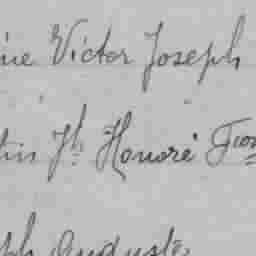 ine Victor Joseph
tin Jh Honoré Fran
ph Auguste